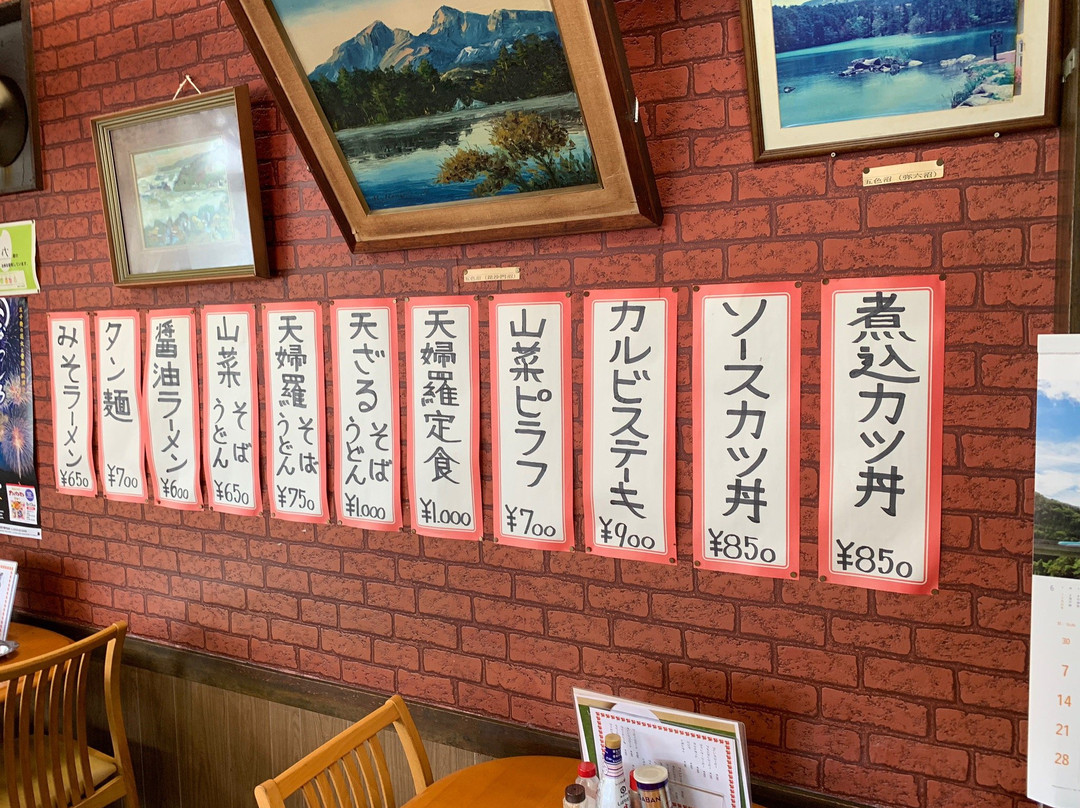 煮込カツ丼
¥850
ソースカツ丼
¥850
カルビステーキ
¥900
山菜ピラフ
¥700
天婦羅定食
¥1.000
天ざるそば
うどん
¥1.000
天婦羅そば
うどん
¥750
山菜そば
うどん
¥650
醤油ラーメン
¥600
タン麺
¥700
みそラーメン
¥650
五色沼
30
7
14
21
28